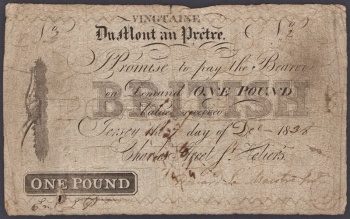 VINGTAINE
Du Mont au Prêtre.
N 3
I Promise to pay the Bearer
on Demand ONE POUND
BRITISH
Value received
Jersey day of Dec 183
Charles Street St. Heliers.
ONE POUND